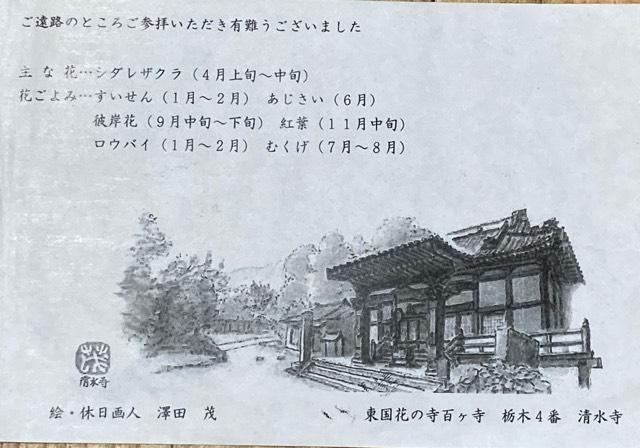 ご遠路のところご参拝いただき有難うございました
主な花…シダレザクラ（４月上旬～中旬）
花ごよみ…すいせん（１月～２月） あじさい（６月）
彼岸花（９月中旬～下旬） 紅葉（１１月中旬）
ロウバイ（１月～２月） むくげ（７月～８月）
清水寺
絵・休日画人 澤田 茂
東国花の寺百ヶ寺 栃木４番 清水寺